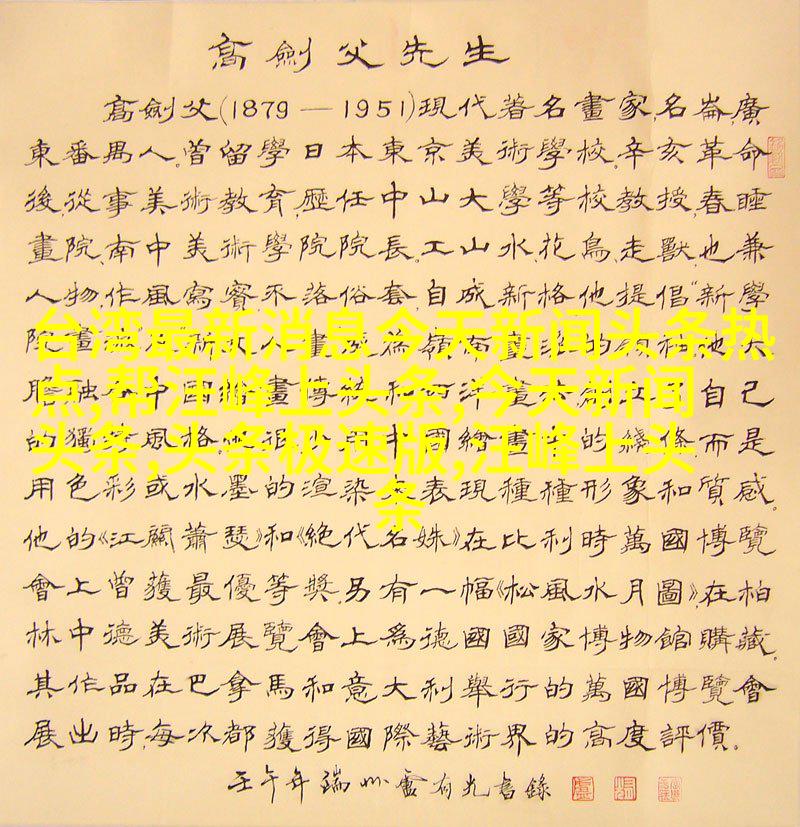 高劍父先生
高劍父(1879—1951)現代著名畫家,名崙,廣
東番禺人。曾留學日本東京美術學校.辛亥革命
後,從事美術教育,歷任中山大學等校教授,春睡
畫院、南中美術學院院長.工山水、花鳥、走獸,也兼
人物.作風寫實不落俗套,自成新格.他提倡“新學
台湾最新消息今天新闻头条热
点,帮汪峰上头条,今天新闻
自己
头条,头条极速版,汪峰上头
的 風格 中國繪畫 的綫條而是
条
用色彩或水墨的渲染 表現種種形象和質感。
他的《江關蕭瑟》和《絕代名姝》在比利時萬國博覽
會上曾獲最優等獎.另有一幅《松風水月圖》,在柏
林中德美術展覽會上爲德國國家博物館購藏.
其作品在巴拿馬和意大利舉行的萬國博覽會
展出時,每次都獲得國際藝術界的高度評價。
壬午年端州盧有光書錄